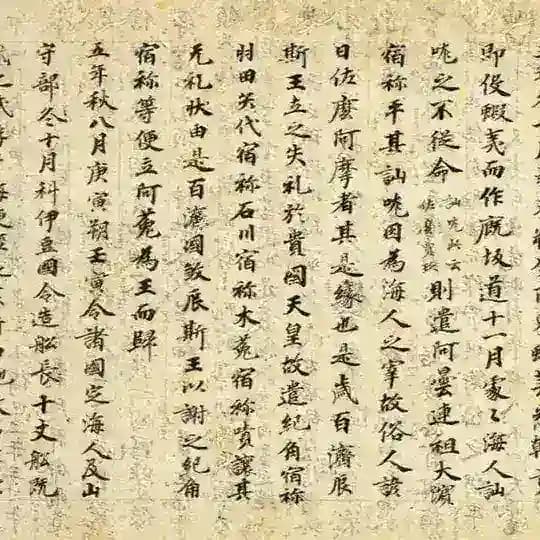 即役蝦夷而作厩坂道十一月處〻海人訕
哤之不従命訕哤此云佐麼賣玖則遣阿曇連祖大濱
宿祢平其訕哤因為海人之宰故俗人諺
曰佐麼阿摩者其是縁也是歳百濟辰
斯王立之失礼於貴國天皇故遣紀角宿祢
羽田矢代宿祢石川宿祢木菟宿祢嘖讓其
无礼状由是百濟國殺辰斯王以謝之紀角
宿祢等便立阿菟為王而歸
五年秋八月庚寅朔壬寅令諸國定海人及山
守部冬十月科伊豆國令造船長十丈船既